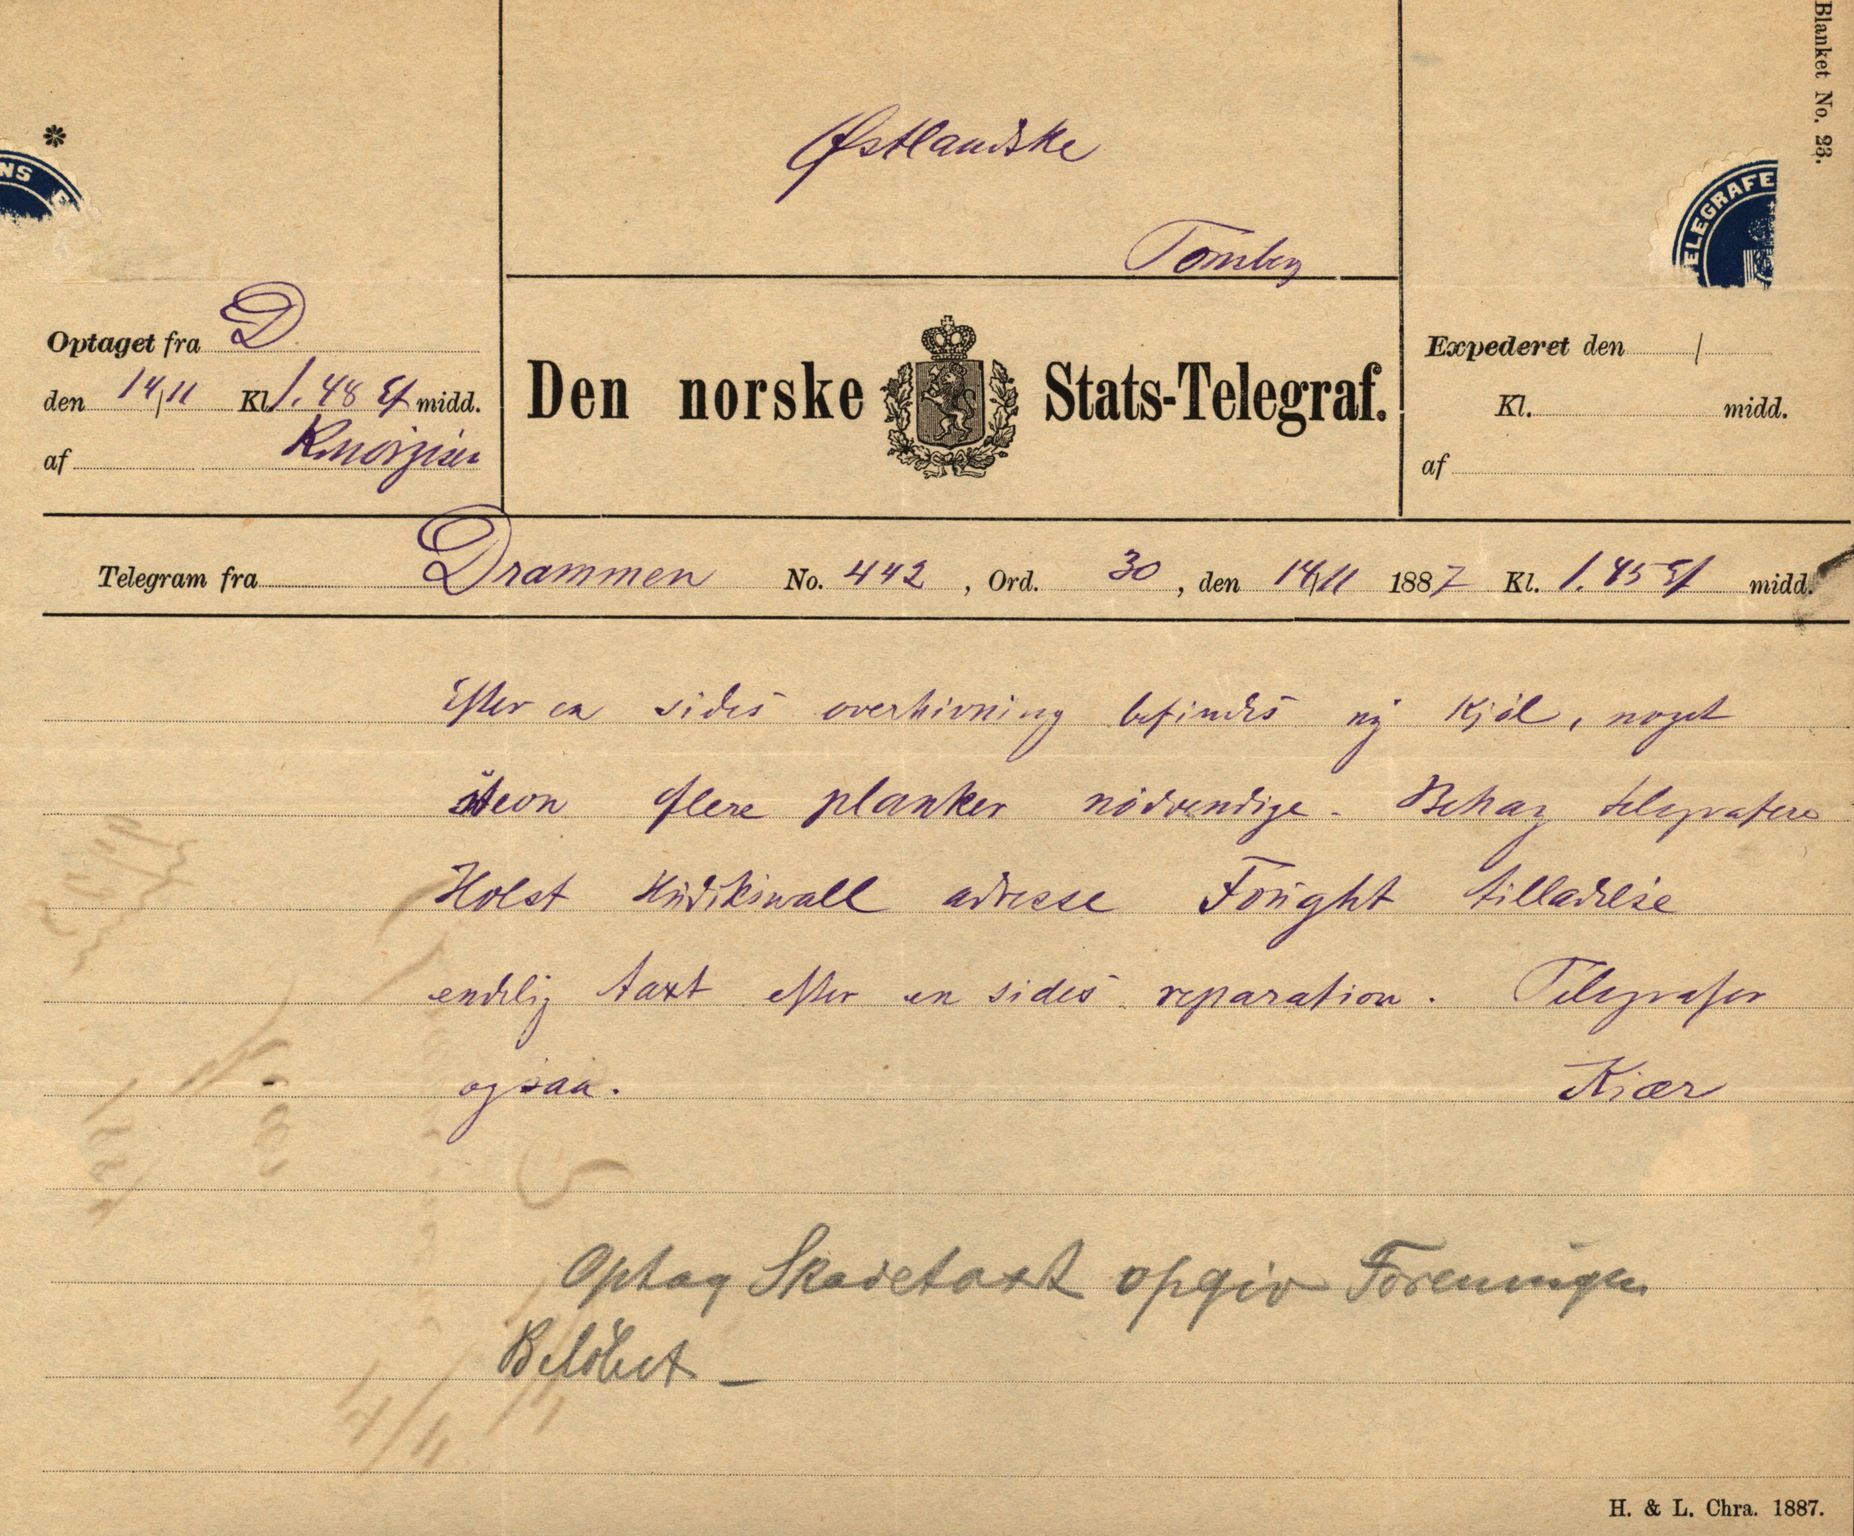 Blanket No. 23.
Østlandske
Tomsberg
NS
TELEGRAFE
Optaget fra D
den 14/11 Kl. 1.48 Ef midd.
af
Den norske Stats-Telegraf.
Expederet den /
Kl. midd.
af
Telegram fra Drammen No. 442, Ord. 30, den 14/11 1887 Kl. 1.45 Ef midd.
Efter en sides overhivning befindes ny kjøl, noget
flere planker nödvendige. Behag telegrafere
Holst Hudikswall adresse Fought tilladelse
endelig taxt efter en sides reparation. Telegrafer
ogsaa. Kiær
Optag Skadetaxt opgiv Foreningen
Belöbet —
H. & L. Chra. 1887.